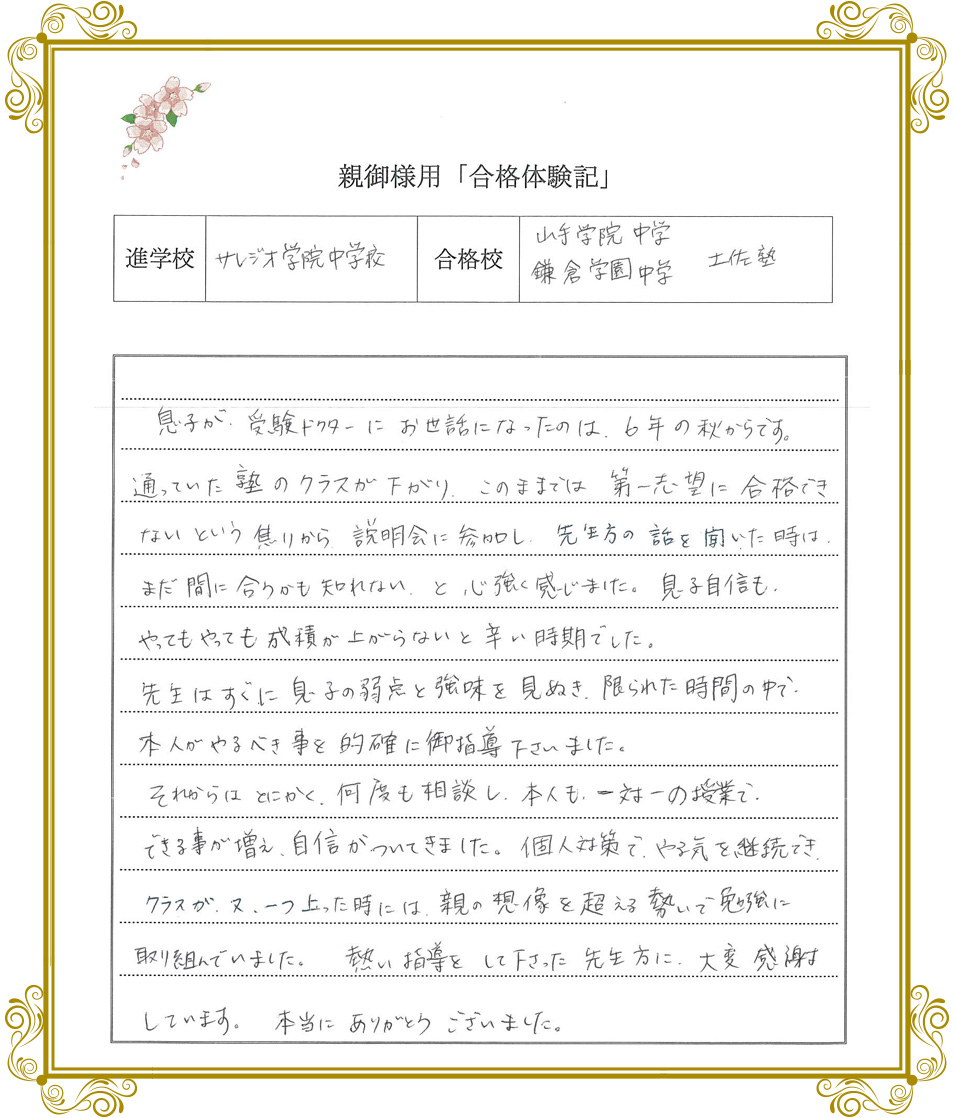 親御様用「合格体験記」
進学校 サレジオ学院中学校 合格校 山手学院中学 鎌倉学園中学 土佐塾
息子が、受験ドクターにお世話になったのは、6年の秋からです。
通っていた塾のクラスが下がり、このままでは第一志望に合格でき
ないという焦りから、説明会に参加し、先生方の話を聞いた時は、
まだ間に合うかも知れない、と心強く感じました。息子自信も、
やってもやっても成積が上がらないと辛い時期でした。
先生はすぐに息子の弱点と強味を見ぬき、限られた時間の中で、
本人がやるべき事を的確に御指導下さいました。
それからはとにかく、何度も相談し、本人も、一対一の授業で、
できる事が増え、自信がついてきました。個人対策で、やる気を継続でき、
クラスが、又、一つ上った時には、親の想像を超える勢いで勉強に
取り組んでいました。 熱い指導をして下さった先生方に、大変感謝は
しています。 本当にありがとうございました。